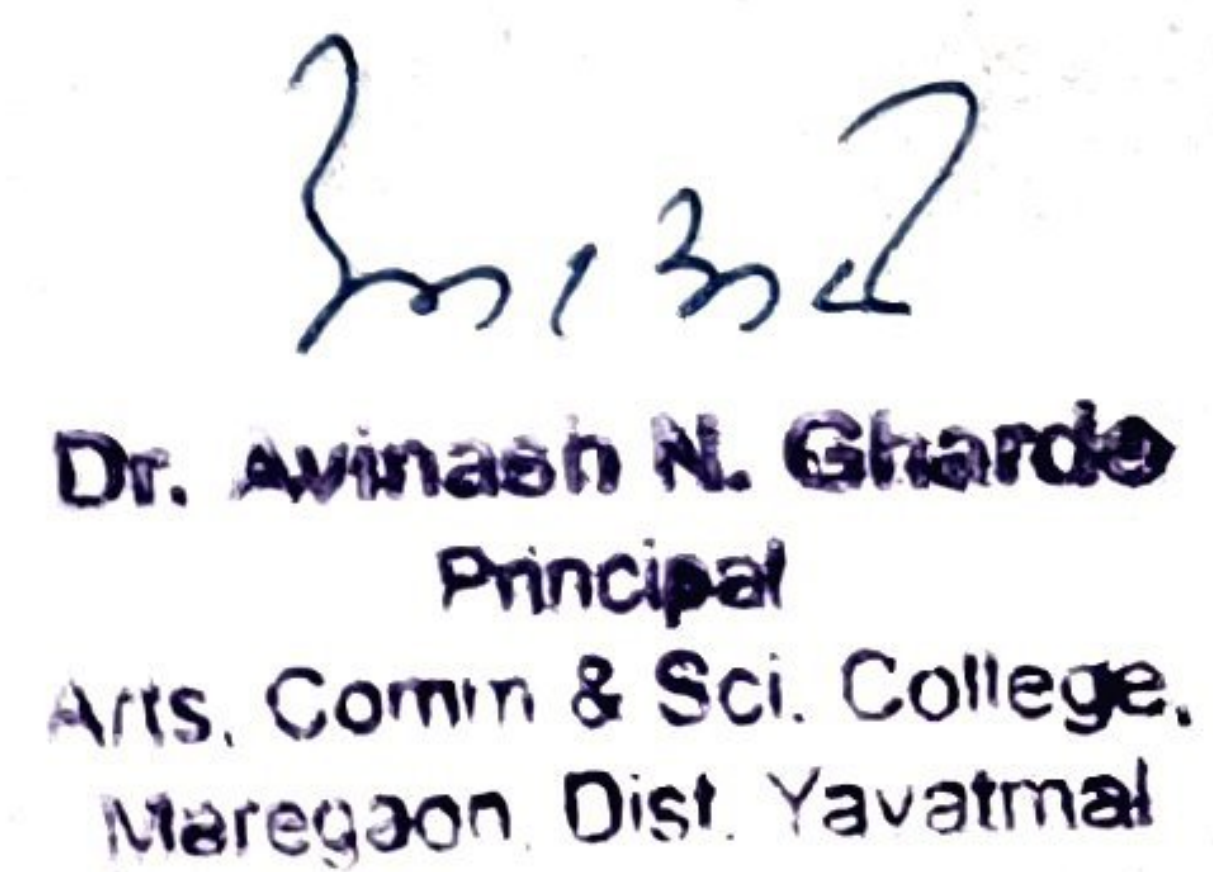 Dr. Avinash N. Gharde
Principal
Arts, Comm & Sci. College,
Maregaon. Dist. Yavatmal